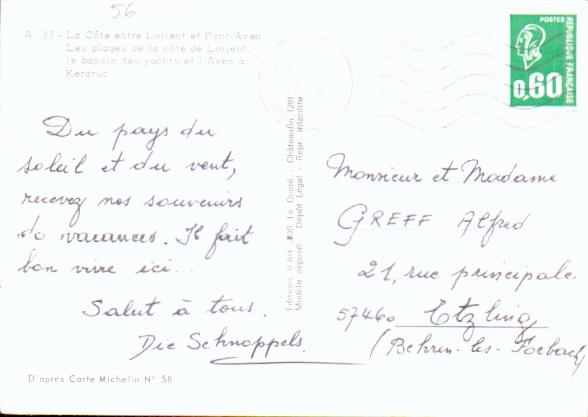 56
A 33 - La Côte entre Lorient et Pont-Aven
Les plages de la côte de Lorient,
le bassin des yachts et l'Aven à
Kerdruc
POSTES
0,60
REPUBLIQUE FRANCAISE
Du pays du
soleil et du vent,
recevez nos souvenirs
de vacances. Il fait
bon vivre ici...
Salut à tous.
Die Schnoppels.
Editions d'Art JOS Le Doaré - Châteaulin (29)
Modèle déposé Dépôt Légal - Repr. interdite
Monsieur et Madame
GREFF Alfred
21, rue principale
57460 Etzling
(Behren-les-Forbach)
D'après Carte Michelin N° 58